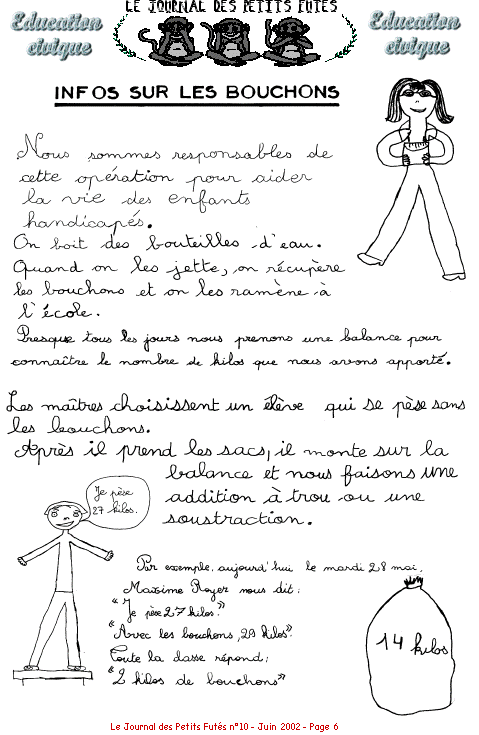 LE JOURNAL DES PETITS FUTÉS
Education
civique
Education
civique
INFOS SUR LES BOUCHONS
Nous sommes responsables de
cette opération pour aider
la vie des enfants
handicapés.
On boit des bouteilles d'eau.
Quand on les jette, on récupère
les bouchons et on les ramène à
l'école.
Presque tous les jours nous prenons une balance pour
connaître le nombre de kilos que nous avons apporté.
Les maîtres choisissent un élève qui se pèse sans
les bouchons.
Après il prend les sacs, il monte sur la
balance et nous faisons une
addition à trou ou une
soustraction.
Je pèse
27 kilos.
Par exemple, aujourd'hui le mardi 28 mai,
Maxime Royer nous dit :
"Je pèse 27 kilos."
"Avec les bouchons, 29 kilos".
Toute la classe répond :
"2 kilos de bouchons"
14 kilos
Le Journal des Petits Futés n°10 - Juin 2002 - Page 6